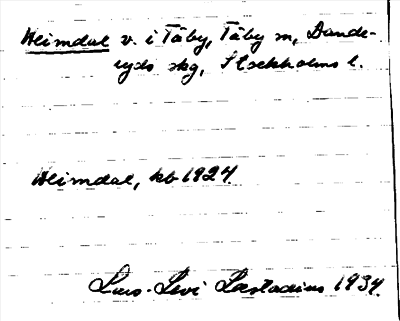 Heimdal v. i Täby, Täby sn, Dande-
ryds skg, Stockholms l.
Heimdal, kb 1924
Lars-Levi Læstadius 1934.